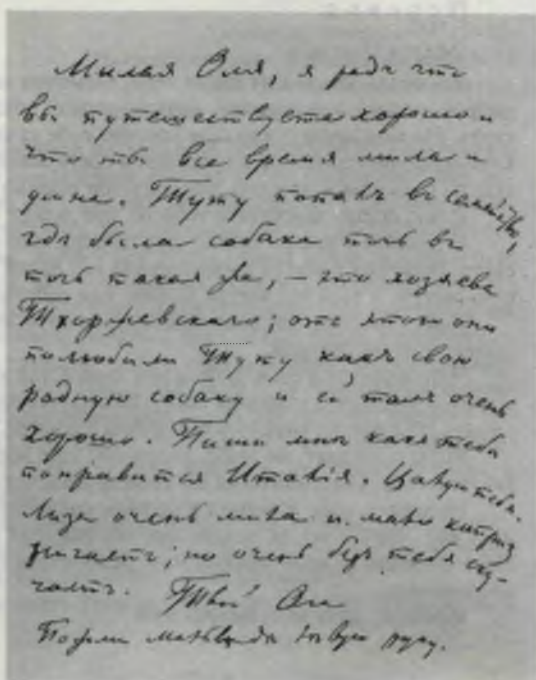 Милая Оля, я радъ что
вы путешествуете хорошо и
что ты все время мила и
умна. Туту попалъ въ семейство,
гдѣ была собака точь въ
точь такая же, – это хозяева
Тхоржевскаго; отъ этого они
полюбили Туту какъ свою
родную собаку и ей тамъ очень
хорошо. Пиши мнѣ какъ тебѣ
понравится Италія. Цалую тебя.
Лиза очень мила и мало каприз
ничаетъ; но очень безъ тебя ску-
чаетъ. Твой Ага
Пожми Мальвидѣ руку.